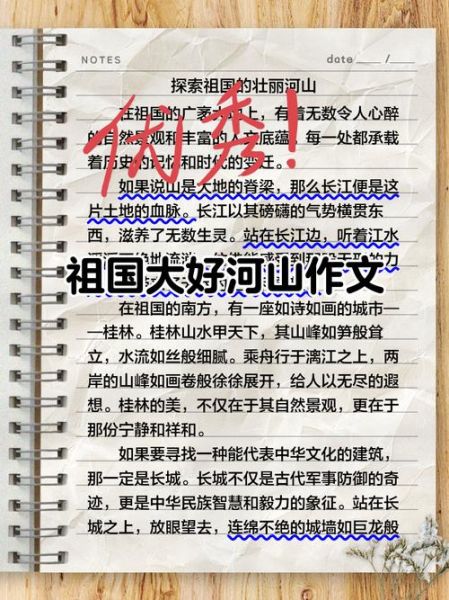 NOTES
date ___ /___
探索祖国的壮丽河山
在祖国的广袤大地上，有着无数令人心醉
的自然景观和丰富的人文底蕴，每一处都承载
着历史的记忆和时代的变迁。
优秀！
如果说山是大地的脊梁，那么长江便是这
片土地的血脉。长江以其磅礴的气势横贯东
西，滋养了无数生灵。站在长江边，听着江水
到
的力
祖国大好河山作文
在祖国的南方，有一座如诗如画的城市—
—桂林。桂林山水甲天下，其山峰如笋般耸
立，水流如丝般细腻。乘舟行于漓江之上，两
岸的山峰如画卷般徐徐展开，给人以无尽的遐
想。桂林的美，不仅在于其自然景观，更在于
那份宁静和祥和。
如果要寻找一种能代表中华文化的建筑，
那一定是长城。长城不仅是古代军事防御的奇
迹，更是中华民族智慧和毅力的象征。站在长
城之上，放眼望去，连绵不绝的城墙如巨龙般